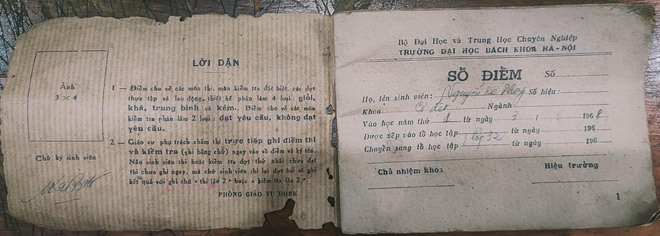 LỜI DẶN
Ảnh
3 × 4
1 — Điểm cho về các môn thi, môn kiểm tra đặc biệt, các đợt
thực tập và lao động, thiết kế phân làm 4 loại: giỏi,
khá, trung bình và kém. Điểm cho về các môn
kiểm tra phân làm 2 loại: đạt yêu cầu, không đạt
yêu cầu.
2 — Giáo sư phụ trách chấm thi trực tiếp ghi điểm thi
và kiểm tra (ghi bằng chữ) ngay vào sổ điểm và ký tên.
Nếu sinh viên thi hoặc kiểm tra đợt thứ nhất chưa đạt
thì chưa ghi ngay, mà chờ sinh viên thi lại đợt hai sẽ ghi
kết quả với ghi chú « thi lần 2 » hoặc « kiểm tra lần 2 ».
Chữ ký sinh viên
PHÒNG GIÁO VỤ ĐHBK
Bộ Đại Học và Trung Học Chuyên Nghiệp
TRƯỜNG ĐẠI HỌC BÁCH KHOA HÀ-NỘI
SỔ ĐIỂM Số
Họ, tên sinh viên: Nguyễn số hiệu:
Khoa Ngành
Vào học năm thứ 1 từ ngày 3 196
Được xếp vào tổ học tập từ ngày 196
Chuyển sang tổ học tập từ ngày 196
Chủ nhiệm khoa Hiệu trưởng
1